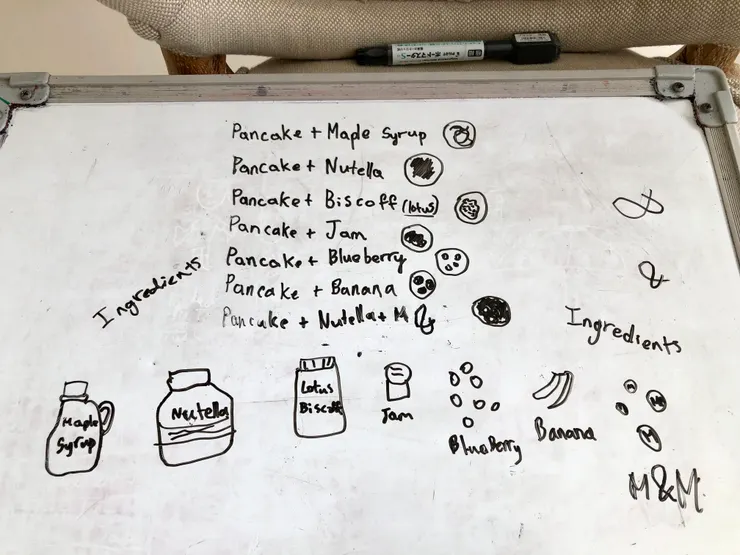 Pancake + Maple Syrup
Pancake + Nutella
Pancake + Biscoff (lotus)
Pancake + Jam
Pancake + Blueberry
Pancake + Banana
Pancake + Nutella + M &
Ingredients
Ingredients
Maple
Syrup
Nutella
Lotus
Biscoff
Jam
BlueBerry
Banana
M
M
M&M